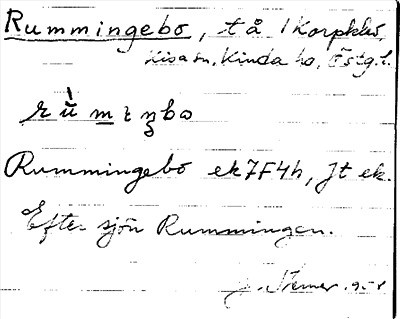 Rummingebo, t å /Korpklev,
Kisa sn, Kinda hd, Östg.l.
rùmɩŋbo
Rummingebo ek 7F4h, Jt ek.
Efter sjön Rummingen.